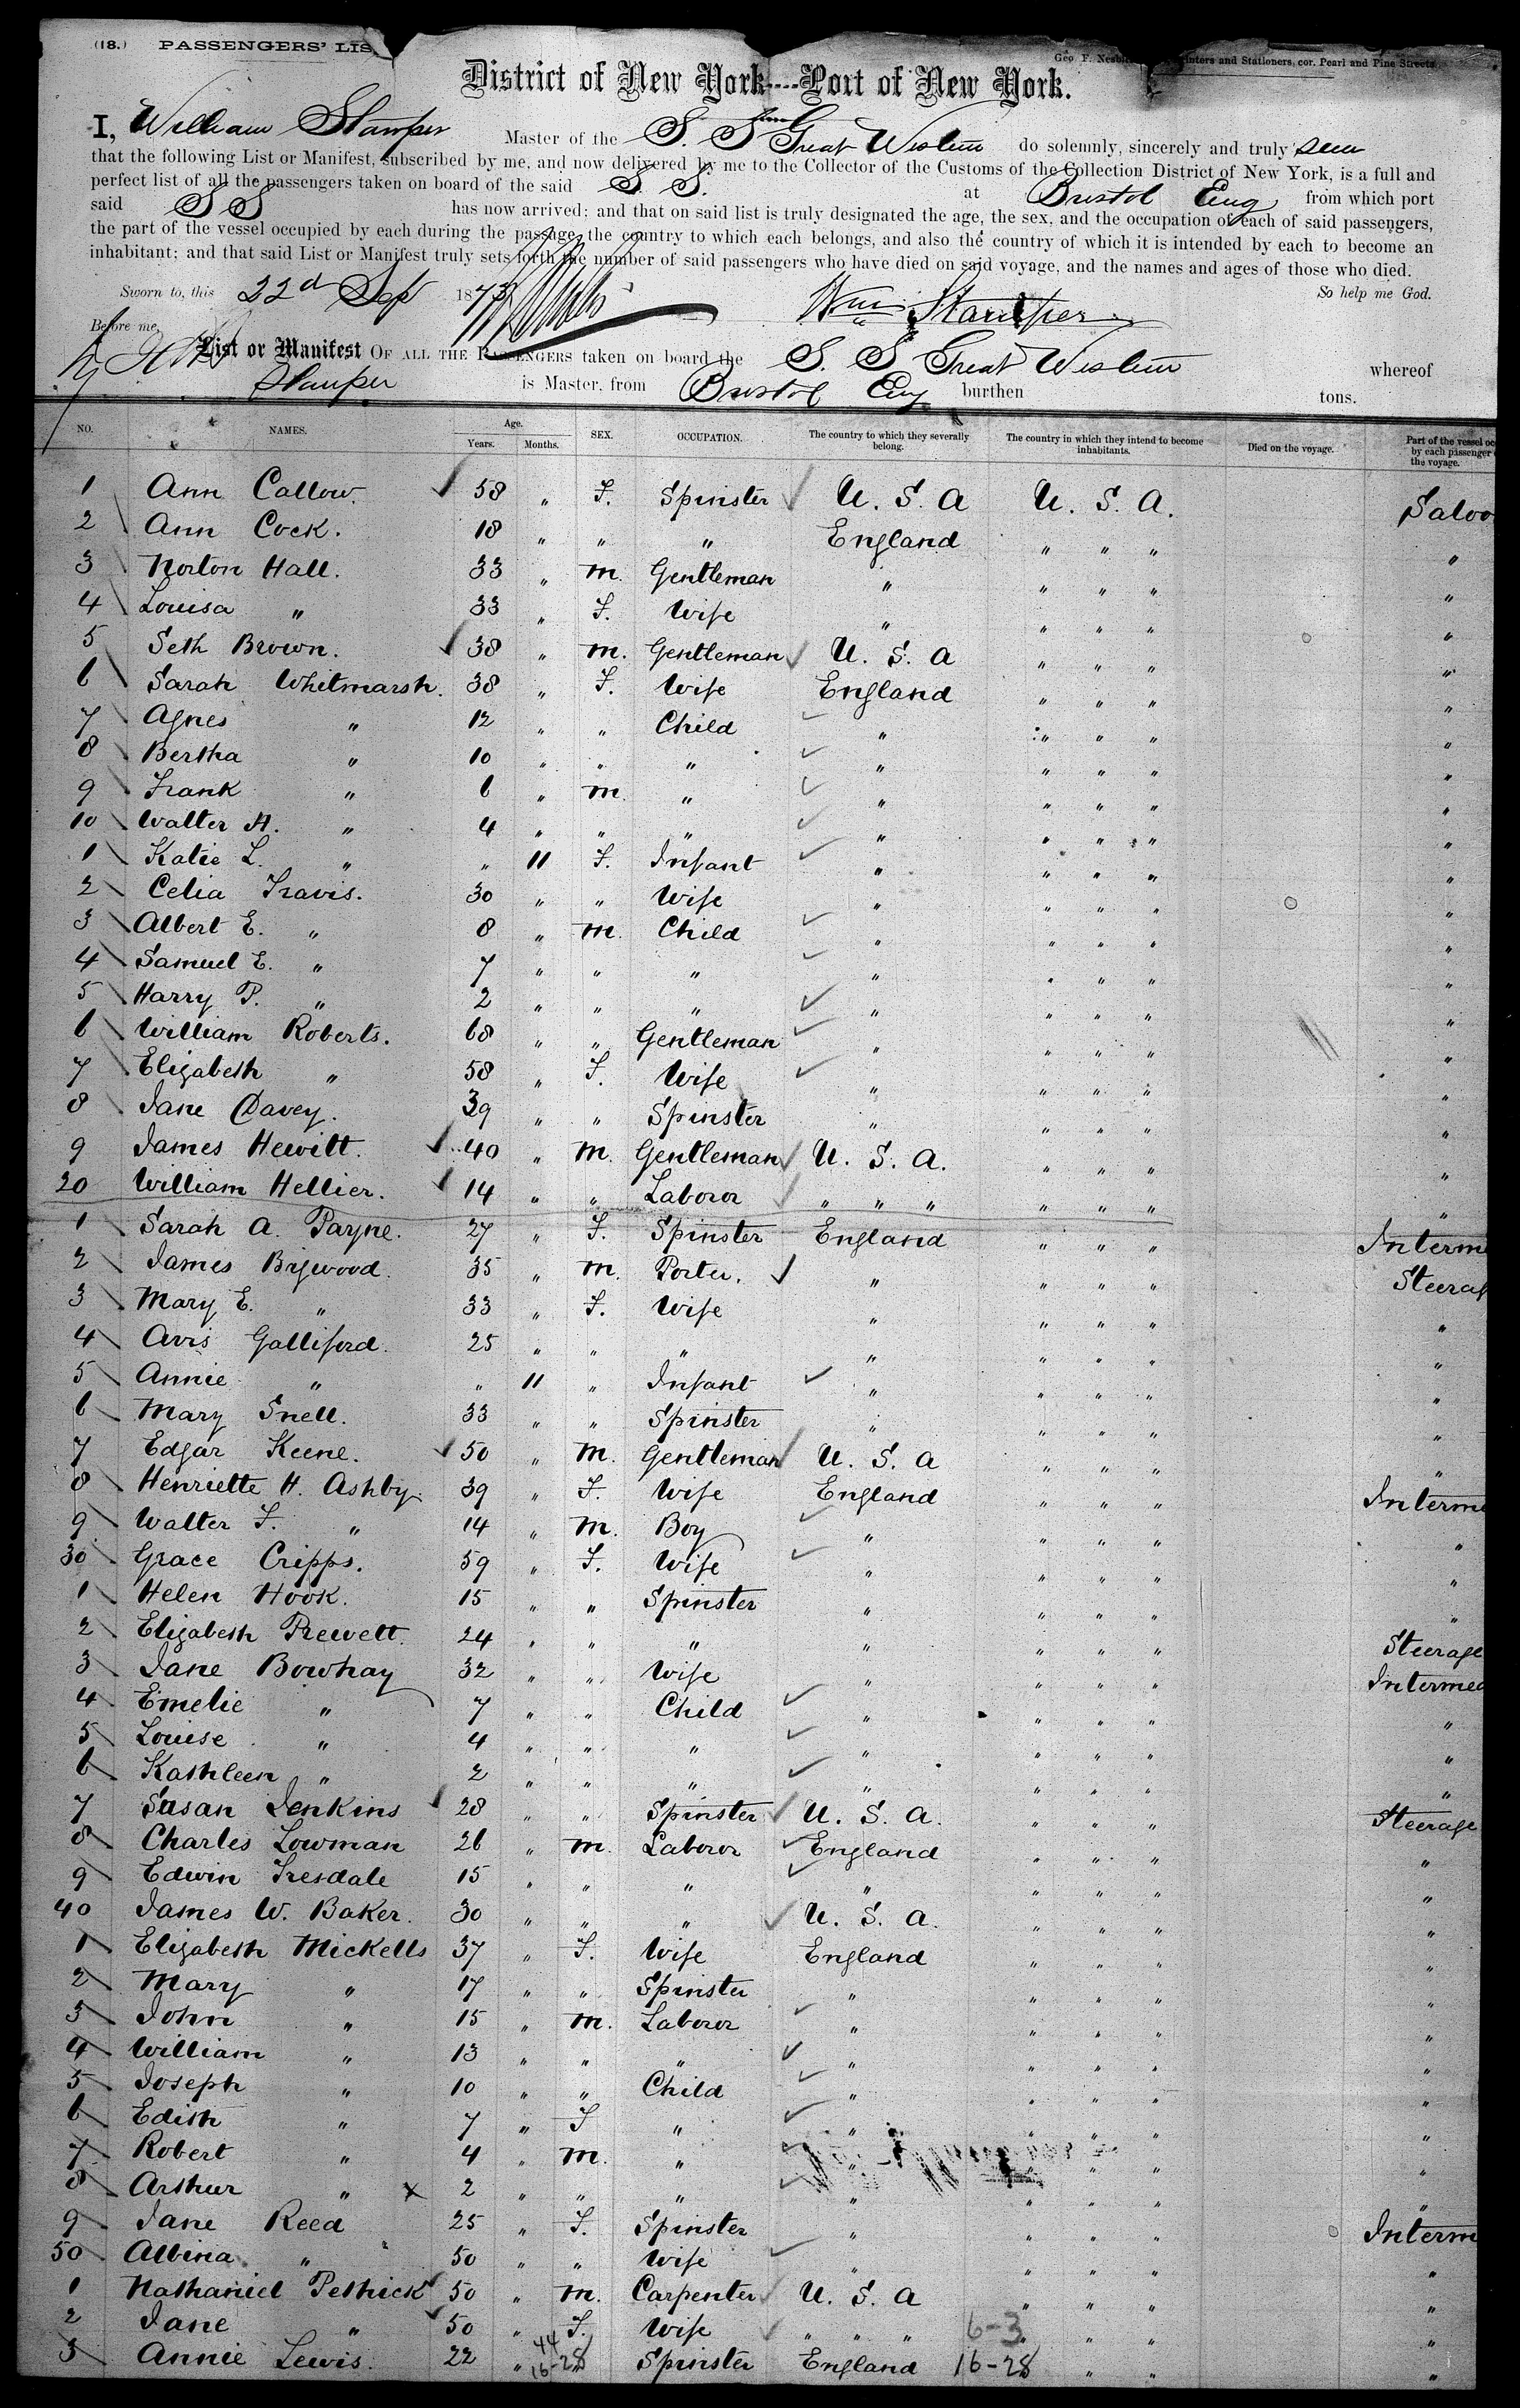 (18.) PASSENGERS' LIS
Geo F. Nesbi inters and Stationers, cor. Pearl and Pine Streets
District of New York----Port of New York.
I, William Stamper Master of the S. S. Great Western do solemnly, sincerely and truly swear
that the following List or Manifest, subscribed by me, and now delivered by me to the Collector of the Customs of the Collection District of New York, is a full and
perfect list of all the passengers taken on board of the said S S. at Bristol Eng from which port
said S S has now arrived; and that on said list is truly designated the age, the sex, and the occupation of each of said passengers,
the part of the vessel occupied by each during the passage, the country to which each belongs, and also the country of which it is intended by each to become an
inhabitant; and that said List or Manifest truly sets forth the number of said passengers who have died on said voyage, and the names and ages of those who died.
Sworn to, this 22d Sep 1873 Wm Stamper So help me God.
Before me,
List or Manifest OF ALL THE PASSENGERS taken on board the S. S Great Western whereof
Stamper is Master, from Bristol Eng burthen tons.
NO. NAMES. Age. Years. Months. SEX. OCCUPATION. The country to which they severally belong. The country in which they intend to become inhabitants. Died on the voyage. Part of the vessel oc by each passenger the voyage.
1 Ann Callow. 58 " F. Spinster U. S. A U. S. A. Saloo
2 Ann Cock. 18 " " " England " " " "
3 Norton Hall. 33 " M. Gentleman " " " " "
4 Louisa " 33 " F. Wife " " " " "
5 Seth Brown. 38 " M. Gentleman U. S. A " " " "
6 Sarah Whitmarsh. 38 " F. Wife England " " " "
7 Agnes " 12 " " Child " " " " "
8 Bertha " 10 " " " " " " " "
9 Frank " 6 " M. " " " " " "
10 Walter H. " 4 " " " " " " " "
1 Katie L. " " 11 F. Infant " " " " "
2 Celia Travis. 30 " " Wife " " " " "
3 Albert E. " 8 " M. Child " " " " "
4 Samuel E. " 7 " " " " " " " "
5 Harry P. " 2 " " " " " " " "
6 William Roberts. 68 " " Gentleman " " " " "
7 Elizabeth " 58 " F. Wife " " " " "
8 Jane Davey. 39 " " Spinster " " " " "
9 James Hewitt. 40 " M. Gentleman U. S. A. " " " "
20 William Hellier. 14 " " Laboror " " " " " " "
1 Sarah A. Payne. 27 " F. Spinster England " " " Interme
2 James Brjwood. 35 " M. Porter. " " " " Steerag
3 Mary E. " 33 " F. Wife " " " " "
4 Avis Galliford. 25 " " " " " " " "
5 Annie " " 11 " Infant " " " " "
6 Mary Snell. 33 " " Spinster " " " " "
7 Edgar Keene. 50 " M. Gentleman U. S. A " " " "
8 Henriette H. Ashby. 39 " F. Wife England " " " Interme
9 Walter F. " 14 " M. Boy " " " " "
30 Grace Cripps. 59 " F. Wife " " " " "
1 Helen Hook. 15 " " Spinster " " " " "
2 Elizabeth Prewett. 24 " " " " " " " Steerage
3 Jane Bowhay 32 " " Wife " " " " Intermed
4 Emelie " 7 " " Child " " " " "
5 Louise " 4 " " " " " " " "
6 Kathleen " 2 " " " " " " " "
7 Susan Jenkins 28 " " Spinster U. S. A. " " " Steerage
8 Charles Lowman 26 " M. Laboror England " " " "
9 Edwin Tresdale 15 " " " " " " " "
40 James W. Baker. 30 " " " U. S. A. " " " "
1 Elizabeth Mickells 37 " F. Wife England " " " "
2 Mary " 17 " " Spinster " " " " "
3 John " 15 " M. Laboror " " " " "
4 William " 13 " " " " " " " "
5 Joseph " 10 " " Child " " " " "
6 Edith " 7 " F " " " " " "
7 Robert " 4 " M. " " " " " "
8 Arthur " x 2 " " " " " " " "
9 Jane Reed 25 " F. Spinster " " " " Interm
50 Albina " 50 " " Wife " " " "
1 Nathaniel Pethick 50 " M. Carpenter U. S. A " " " "
2 Jane " 50 " F. Wife " " " 6-3 " " "
3 Annie Lewis. 22 " 44 16-28 Spinster England 16-28 " " "